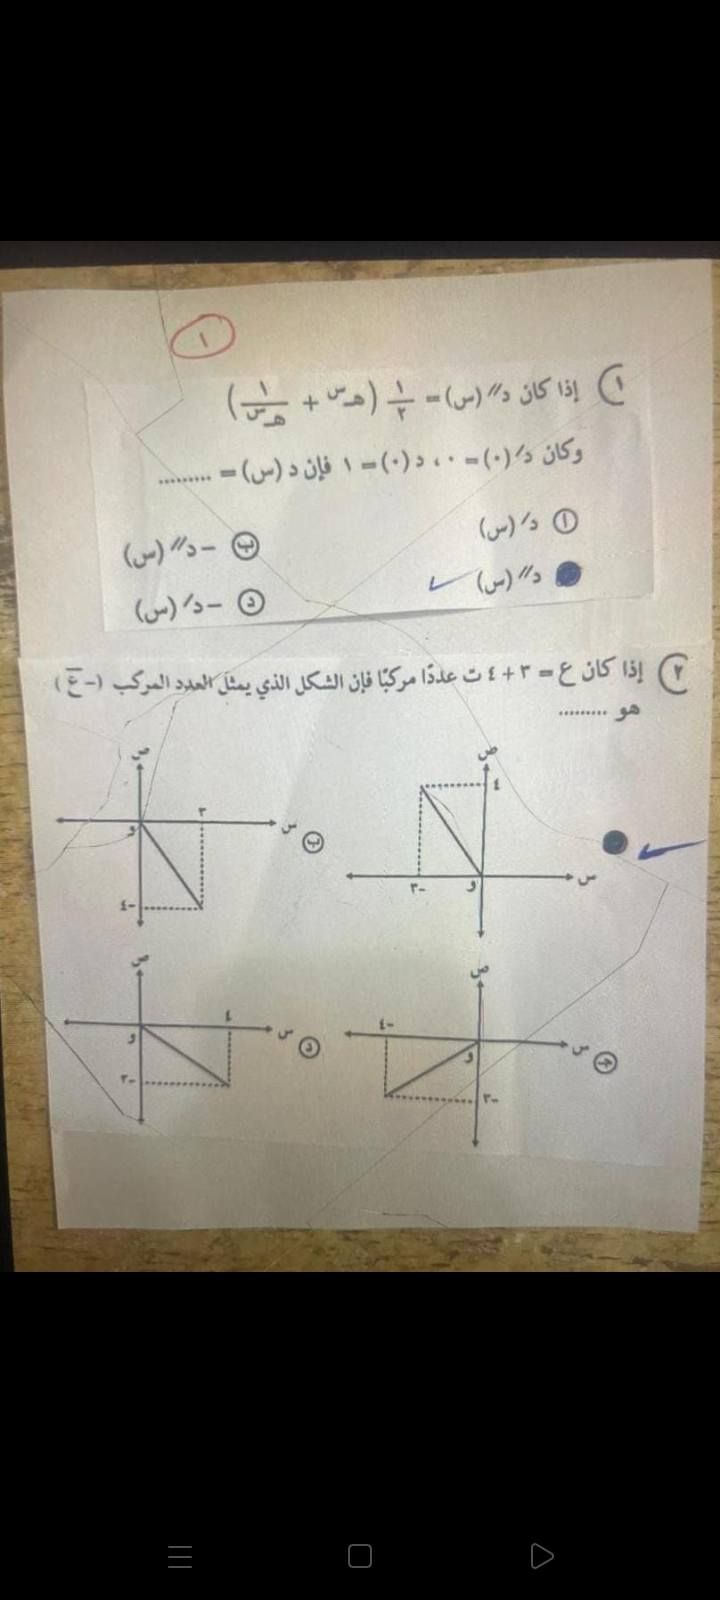 ١
١) إذا كان د//(س) = ١/٢ (هـ^س + ١/هـ^س)
وكان د/(٠) = ٠ ، د(٠) = ١ فإن د(س) = .........
أ د/(س)
ب -د//(س)
د//(س)
د -د/(س)
٢) إذا كان ع = ٣ + ٤ ت عددًا مركبًا فإن الشكل الذي يمثل العدد المركب (-ع̅)
هو .........
ص
٤
س
-٣
و
ب
ص
س
٣
و
-٤
جـ
ص
س
-٤
و
-٣
د
ص
س
٤
و
-٣